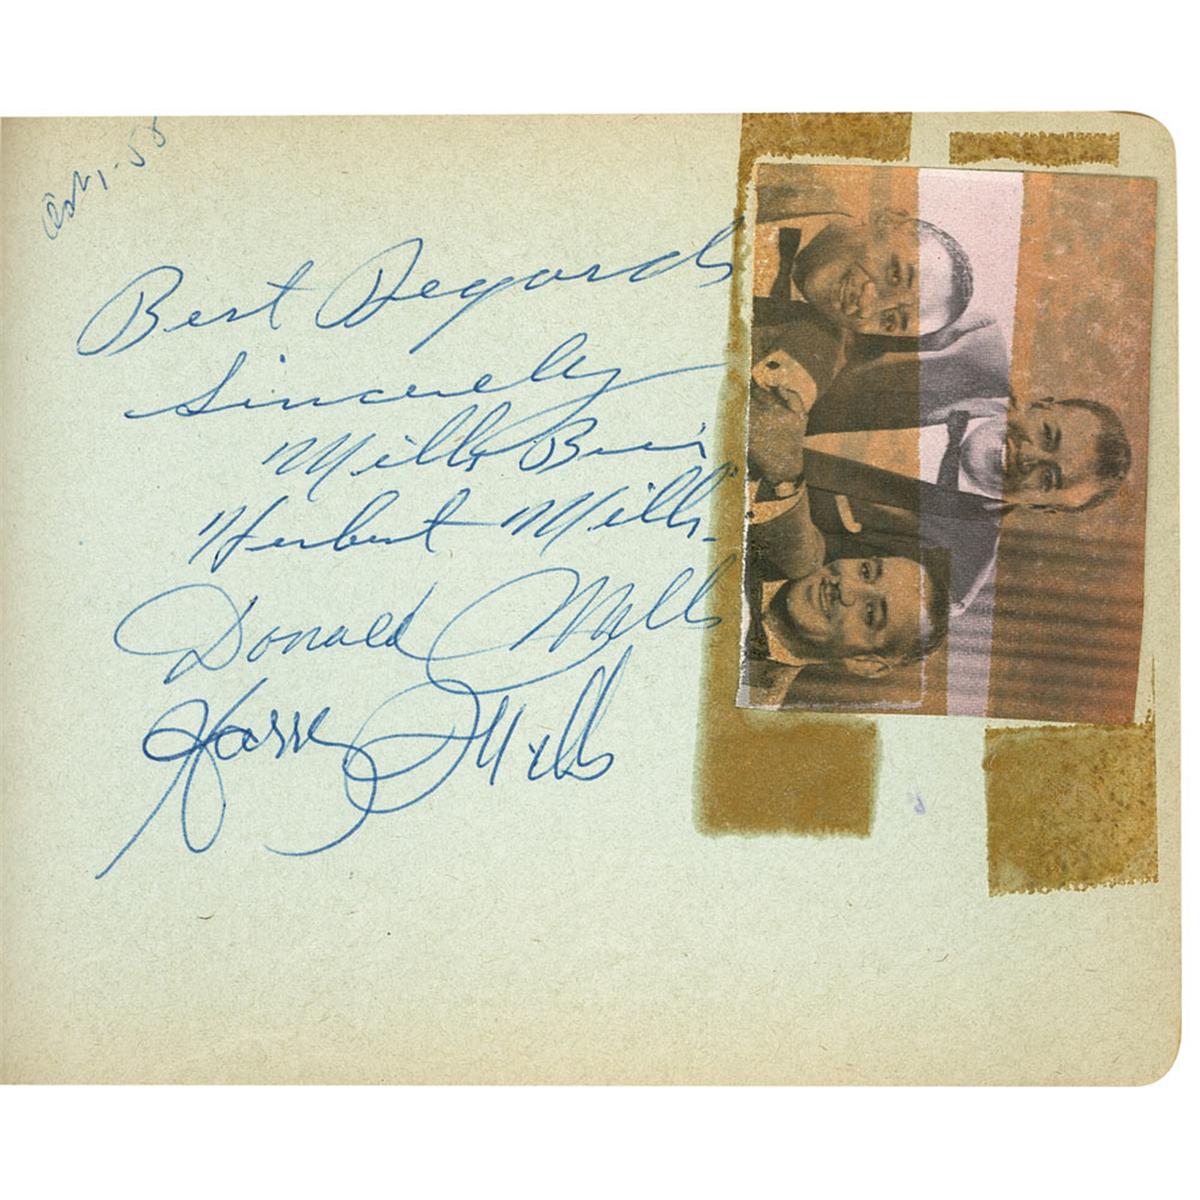 Oct 1-58
Best Regards
Sincerely
Mills Bros.
Herbert Mills.
Donald Mills
Harry Mills